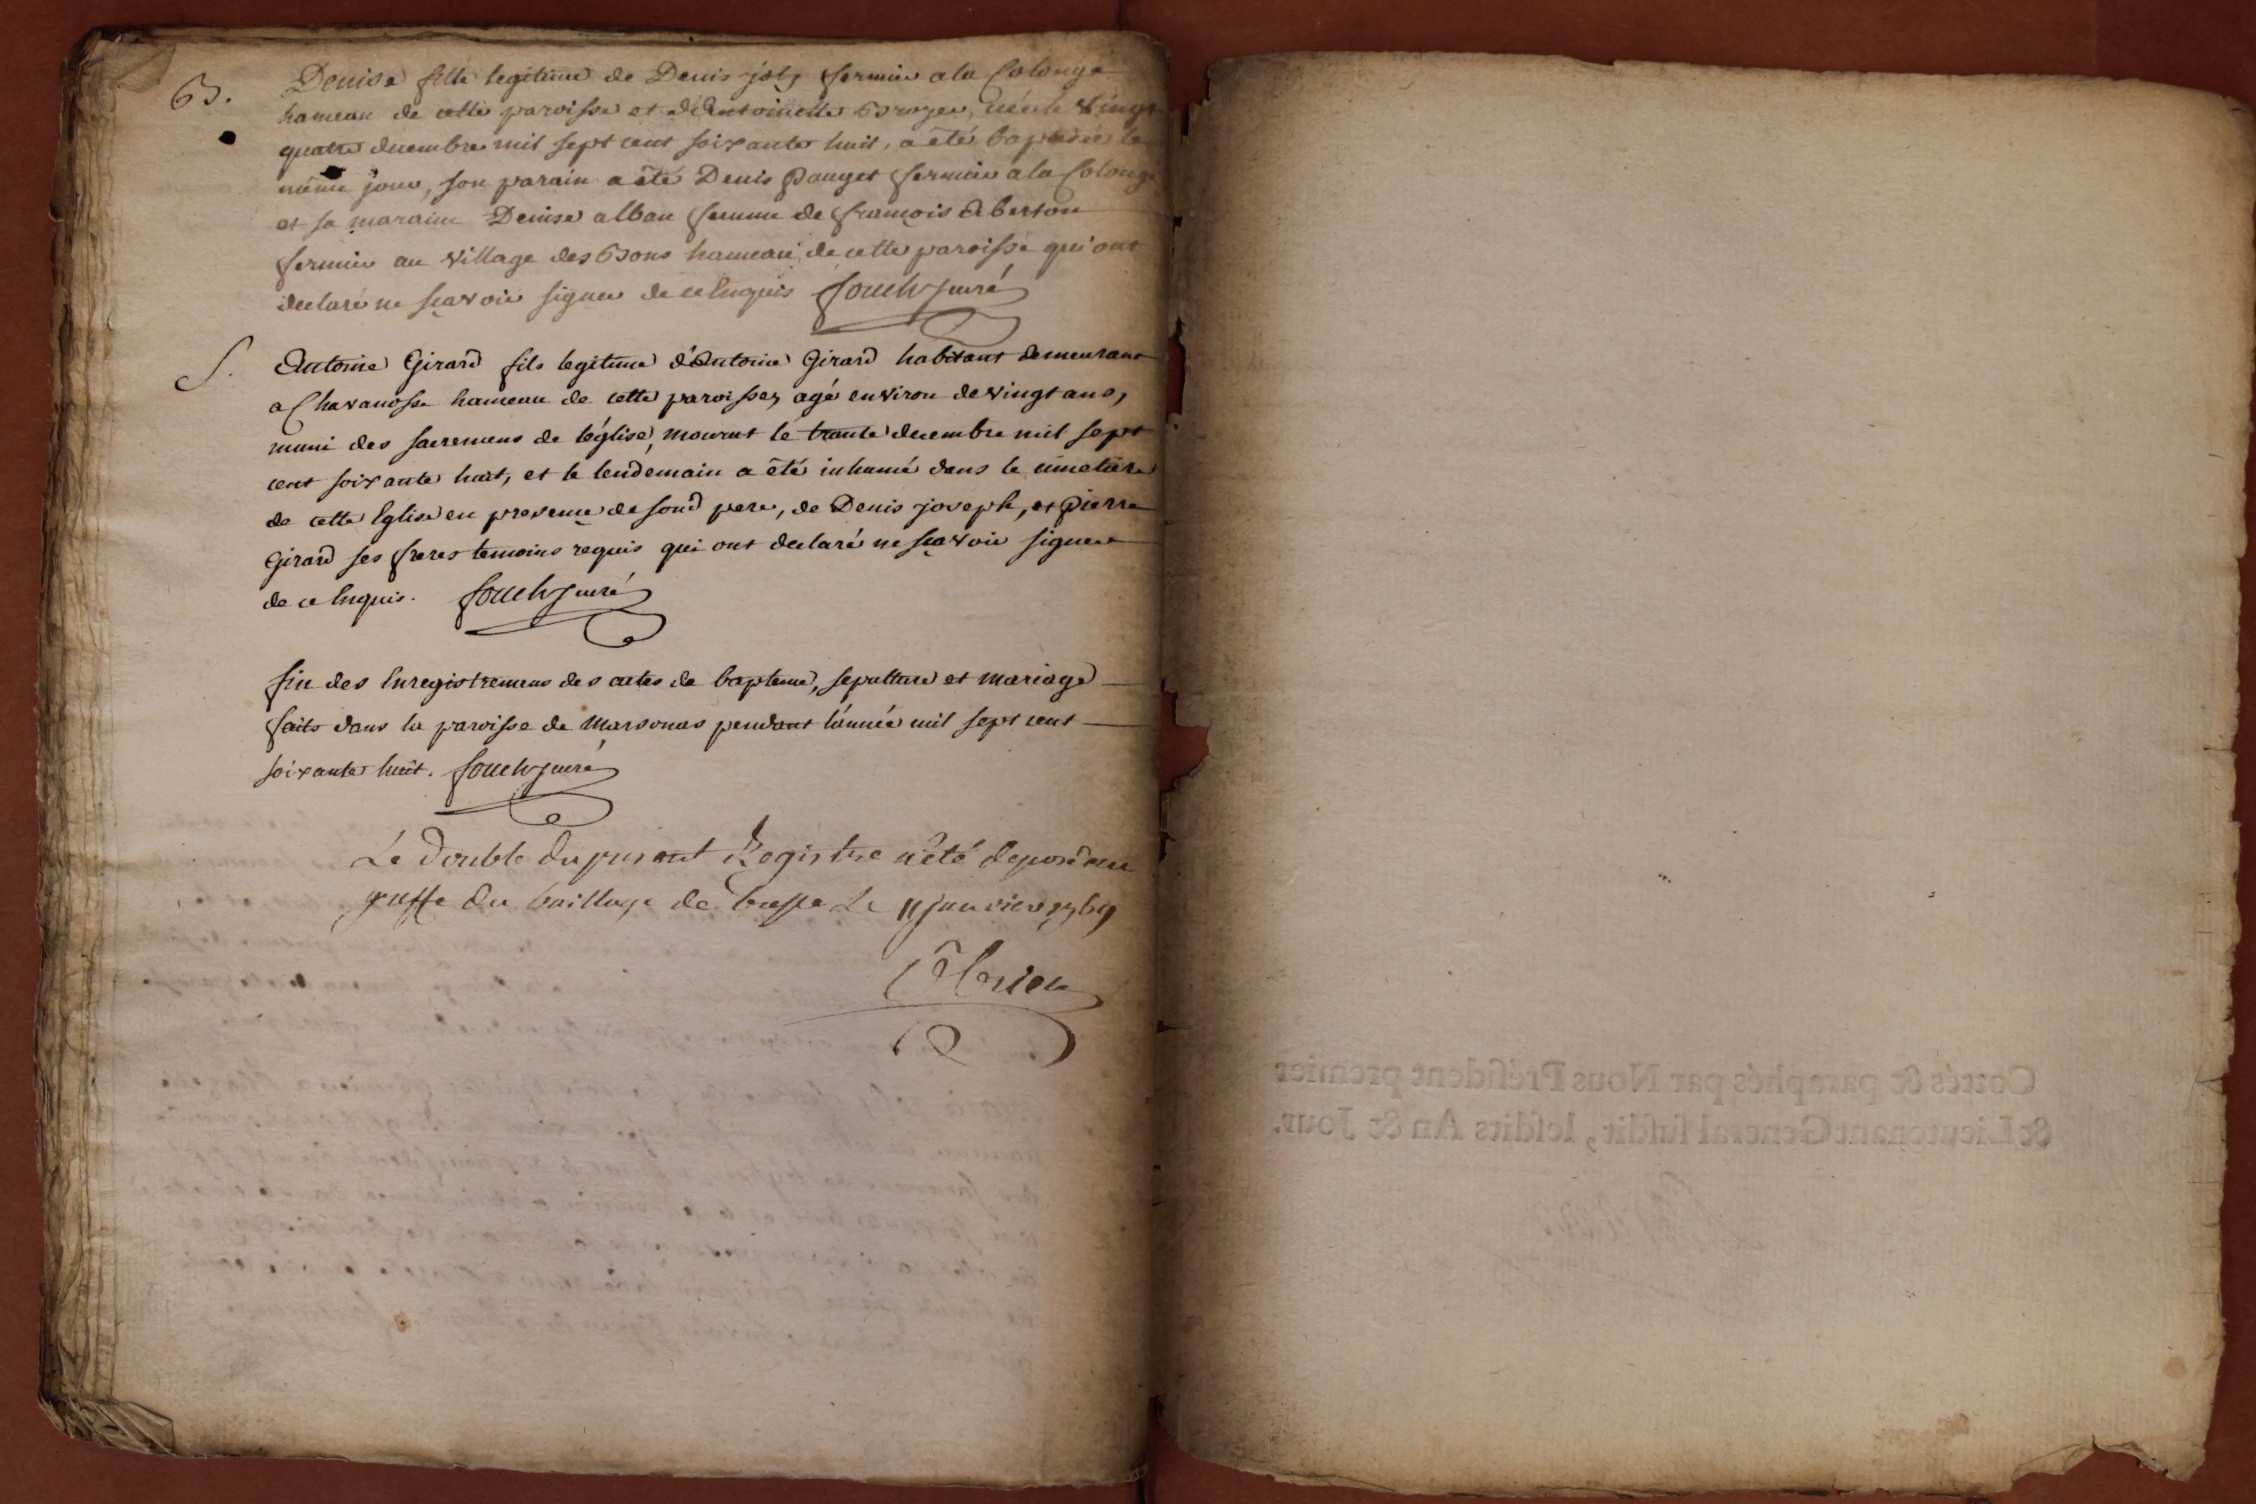 B.
Denise fille legitime de Denis joly fermier a la Colonge
hameau de cette paroisse et d'Antoinette Broyer, née le vingt
quatre decembre mil sept cent soixante huit, a êté baptisée le
même jour, son parain a êté Denis Pauget fermier a la Colonge
et sa maraine Denise alban femme de françois Aberton
fermier au village des Bons hameau de cette paroisse qui ont
declaré ne sçavoir signer de ce Enquis fouchy curé
S.
Antoine Girard fils legitime d'Antoine Girard habitant demeurant
a Chavanosse hameau de cette paroisse, agé environ de vingt ans,
muni des sacremens de l'église, mourut le trante decembre mil sept
cent soixante huit, et le lendemain a été inhumé dans le cimetiere
de cette Eglise en presence de sond pere, de Denis joseph, et pierre
Girard ses freres temoins requis qui ont declaré ne sçavoir signer
de ce Enquis. fouchy curé
fin des Enregistremens des actes de bapteme, sepulture et mariage
faits dans la paroisse de Marsonas pendant l'année mil sept cent
soixante huit. fouchy curé
Le double du present Registre a été deposé au
greffe du bailliage de bresse Le 11 janvier 1769
Cottés & paraphés par Nous Président premier
& Lieutenant General susdit, lesdits An & Jour.